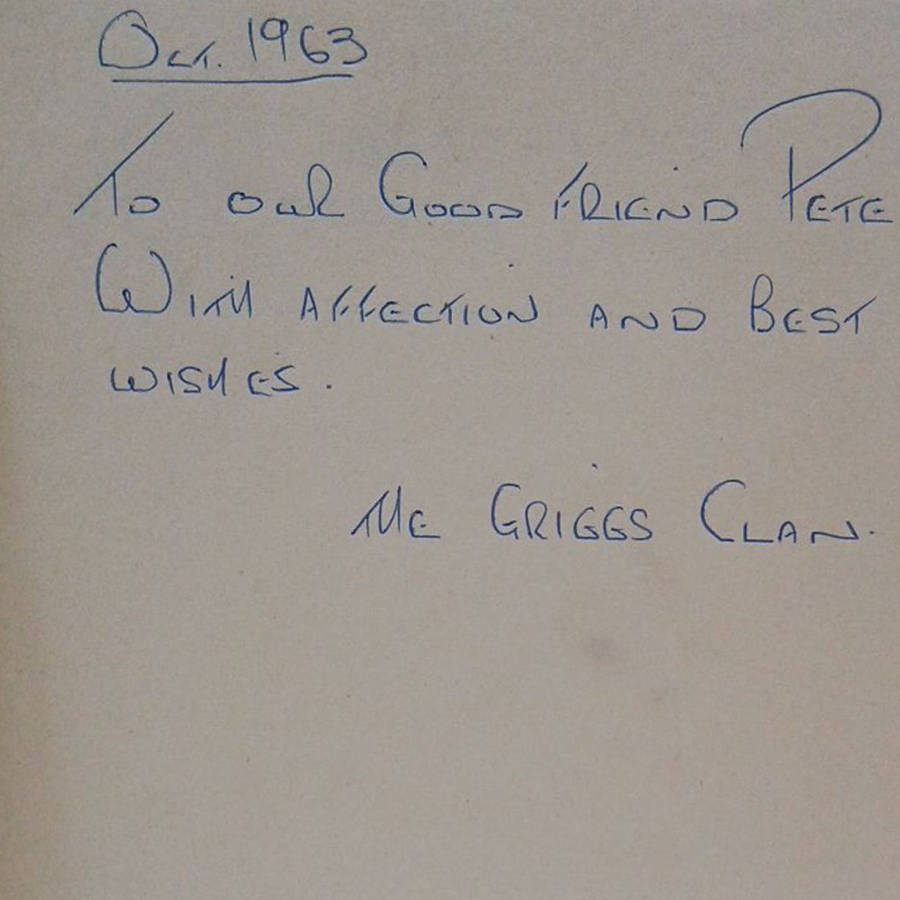 Oct. 1963
To our Good Friend Pete
With affection and Best
wishes.
The Griggs Clan.